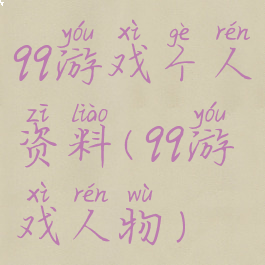 yóu xì gè rén
99游戏个人
zī liào yóu
资料(99游
xì rén wù
戏人物)